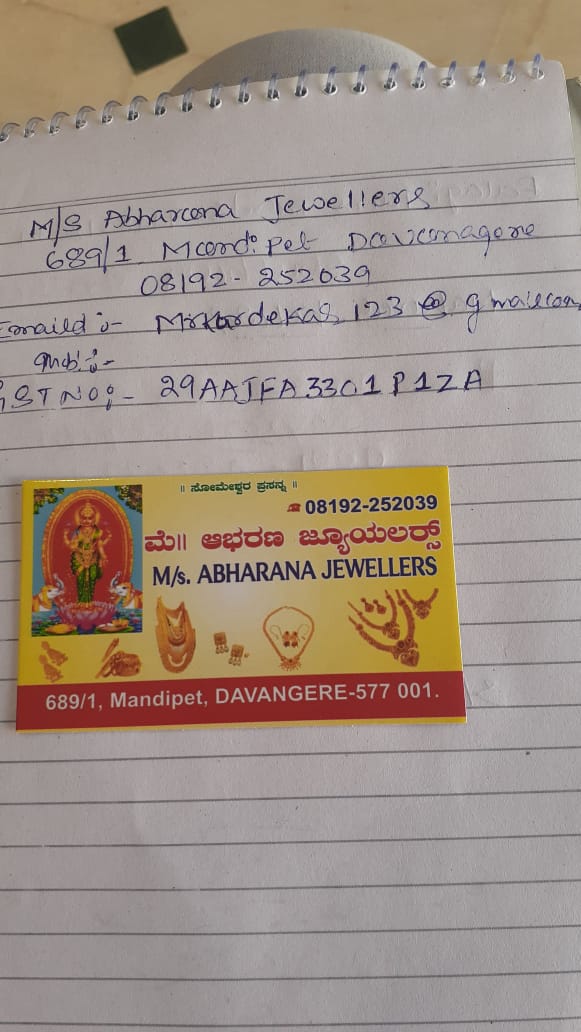 M/S Abharana Jewellers
689/1 Mandi Pet Davanagere
08192-252039
Emaild :- 123 @ gmail.com
Mb :-
GST NO :- 29AAJFA3301P1ZA
॥ ಸೋಮೇಶ್ವರ ಪ್ರಸನ್ನ ॥
☎ 08192-252039
ಮೆ॥ ಆಭರಣ ಜ್ಯೂಯಲರ್ಸ್
M/s. ABHARANA JEWELLERS
689/1, Mandipet, DAVANGERE-577 001.